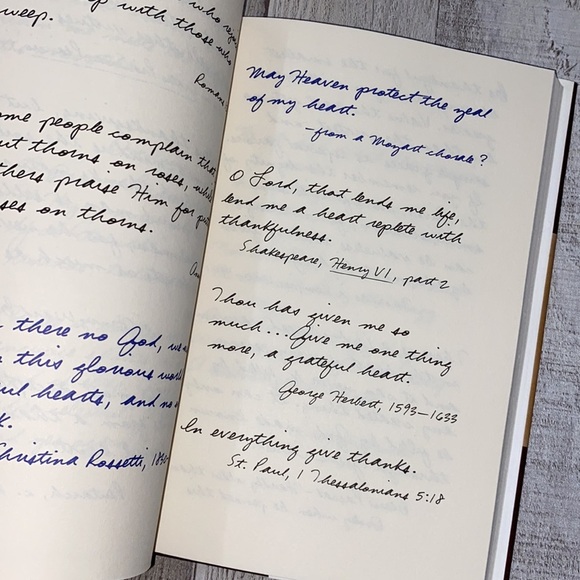 who
with those who
weep.
Romans
some people complain that
thorns on roses,
praise Him for
on thorns.
there no God, we
this glorious
hearts, and no
Christina Rossetti,
May Heaven protect the zeal
of my heart.
—from a Mozart chorale?
O Lord, that lends me life,
lend me a heart replete with
thankfulness.
Shakespeare, Henry VI, part 2
Thou has given me so
much... Give me one thing
more, a grateful heart.
George Herbert, 1593–1633
In everything give thanks.
St. Paul, 1 Thessalonians 5:18